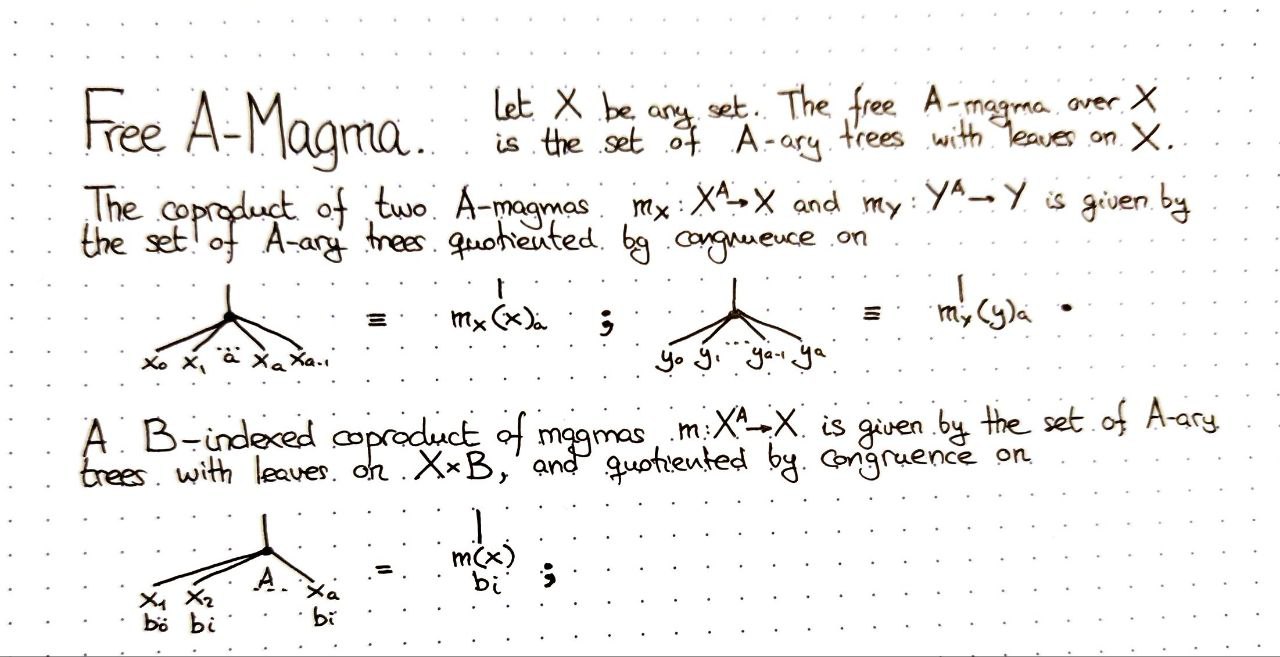 Free A-Magma.
Let X be any set. The free A-magma over X
is the set of A-ary trees with leaves on X.
The coproduct of two A-magmas m_X : X^A → X and m_Y : Y^A → Y is given by
the set of A-ary trees quotiented by congruence on
x_0 x_1 ..a.. x_a x_{a-1} ≡ m_x(x)_a ; y_0 y_1 ... y_{a-1} y_a ≡ m_y(y)_a .
A B-indexed coproduct of magmas m : X^A → X is given by the set of A-ary
trees with leaves on X×B, and quotiented by congruence on
x_1 x_2 ..A.. x_a = m(x) ;
b_0 b_i b_i b_i